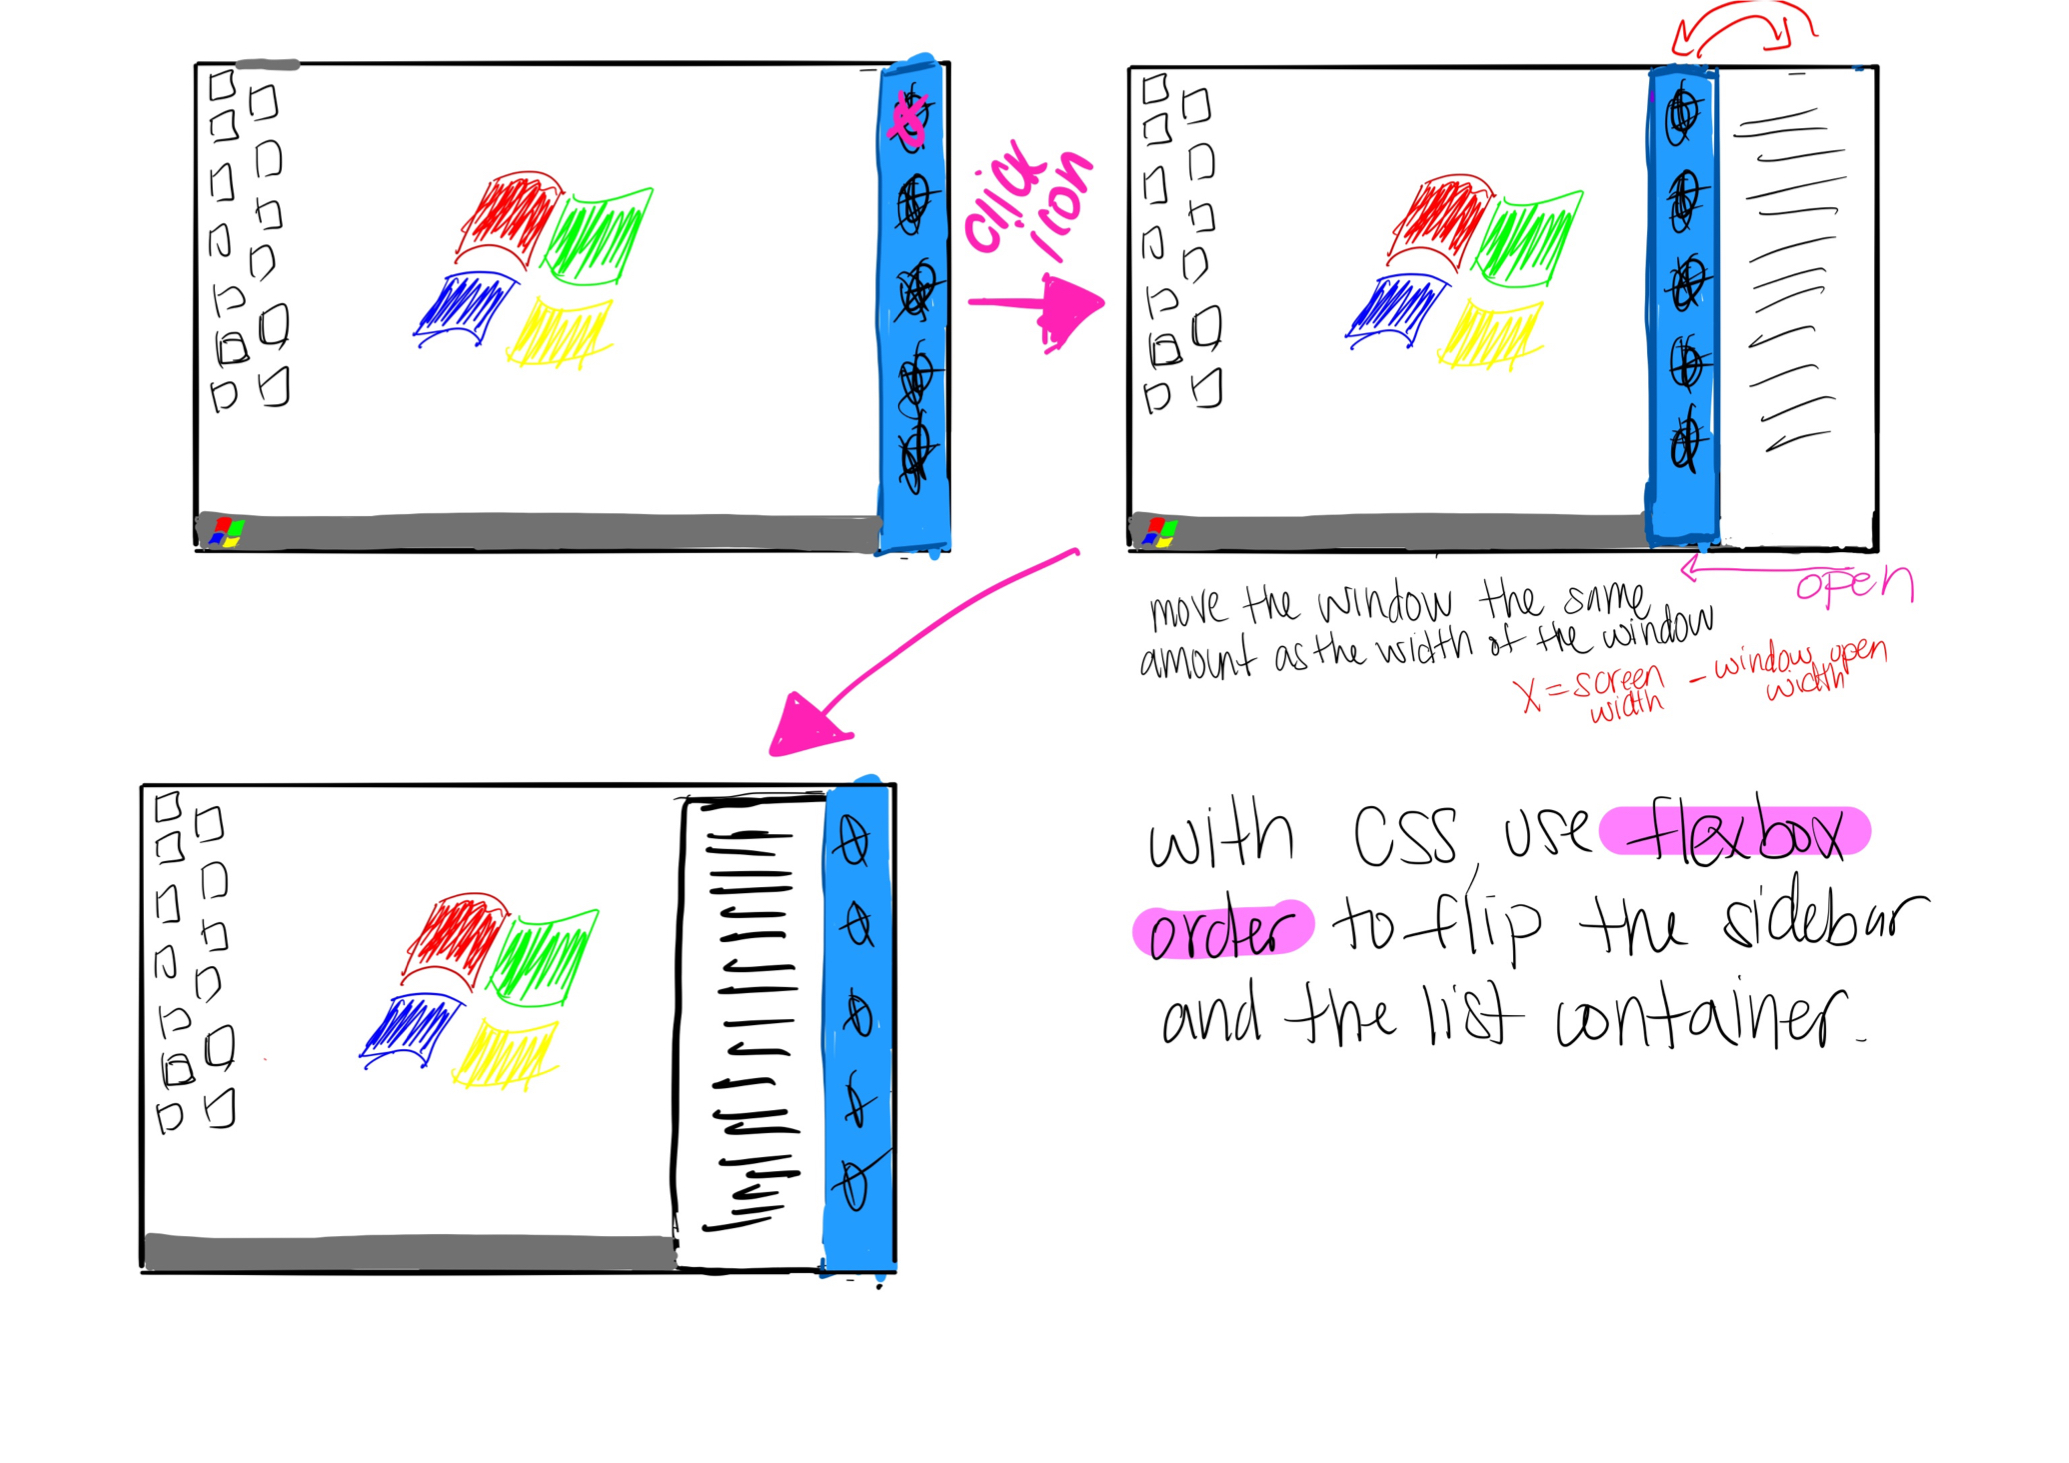 click
icon
open
move the window the same
amount as the width of the window
X = screen width - window open width
with CSS, use flexbox
order to flip the sidebar
and the list container.